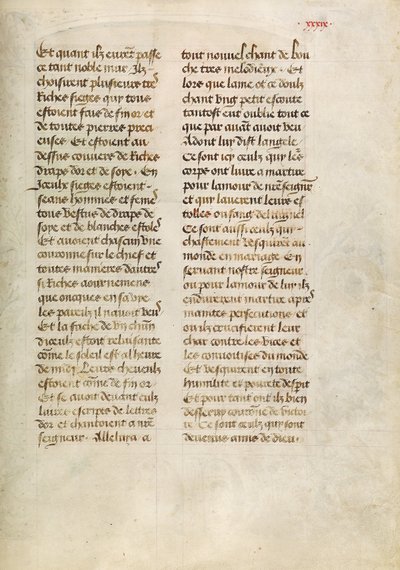 xxxix
Et quant ilz eurent passe
ce tant noble mur Ilz
choisirent plusieurs tres
Riches sieges qui tous
estoient fais de fin or et
de toutes pierres preci
euses Et estoient au
dessus couvers de Riches
draps dor et de soye. En
Iceulx sieges estoient
seans hommes et femes
tous vestus de draps de
soye et de blanches estoles
Et avoient chascun vne
couronne sur le chief et
toutes manieres dautres
si Riches aournemens
que oncques en sa vie
les pareilz il navoit veu
Et la face de vn chun
diceulx estoit reluisante
come le soleil est al heure
de midi Leurs cheveulx
estoient come de fin or
Et se avoit devant eulz
livres escrips de lettres
dor et chantoient a nre
seigneur. Alleluya a
tout nouvel chant de bou
che tres melodieux. Et
lors que lame et ce doulz
chant vng petit escoute
tantost eut oublie tout ce
que par avant avoit veu
Adont luy dist langele
Ce sont icy ceulz qui leurs
corps ont livre a martire
pour lamour de nreseignr
et qui laverent leurs es
tolles ou sang de laignel
Ce sont aussi ceulz qui
chastement vesquirent au
monde en mariage En
servant nostre seigneur
ou pour lamour de luy ilz
endurerent martire apres
maintes persecutions et
ou ilz crucifierent leur
char contre les vices et
les convoitises du monde
Et vesquirent en toute
humilite et povrete desprit
Et pour tant ont ilz bien
desservy couronne de victoi
re Ce sont ceulz qui sont
devenus amis de dieu.